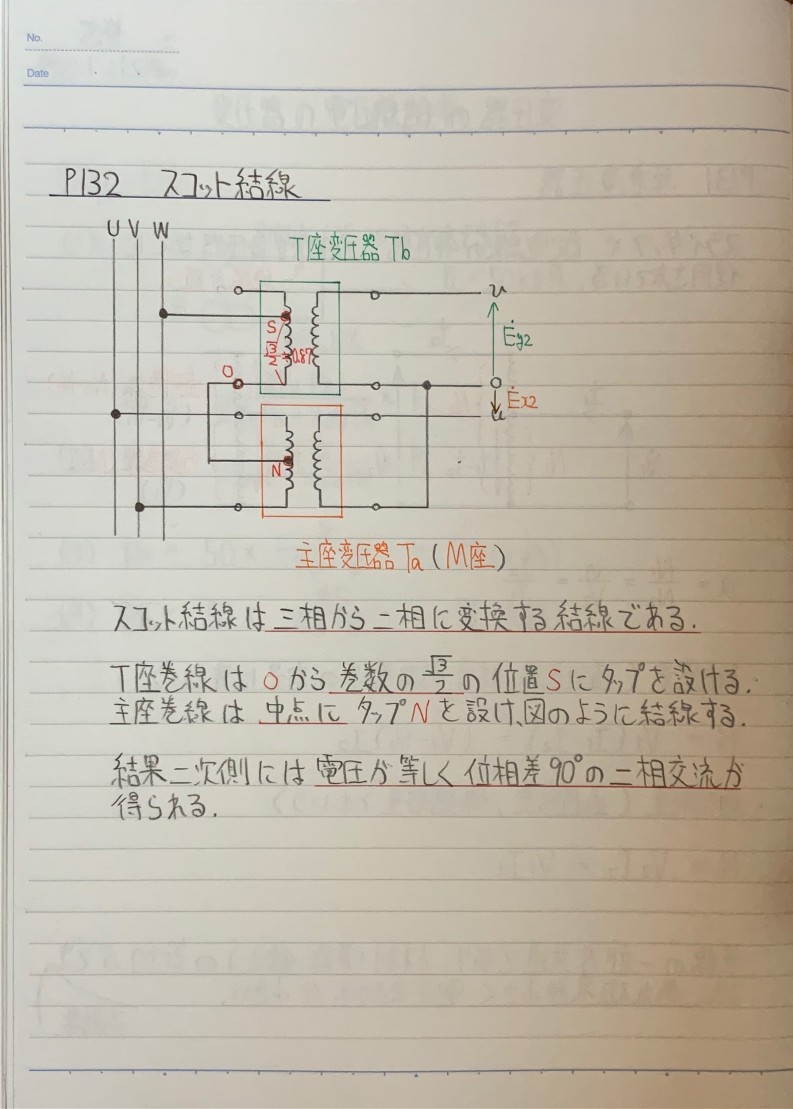 No.
Date
P132 スコット結線
U V W
T座変圧器 Tb
S
√3/2 ≒0.87
O
N
v
Ėy2
o
Ėx2
u
主座変圧器 Ta (M座)
スコット結線は三相から二相に変換する結線である.
T座巻線は O から 巻数の √3/2 の 位置Sに タップを設ける.
主座巻線は 中点に タップNを設け、図のように結線する.
結果二次側には 電圧が等しく位相差90°の二相交流が
得られる.